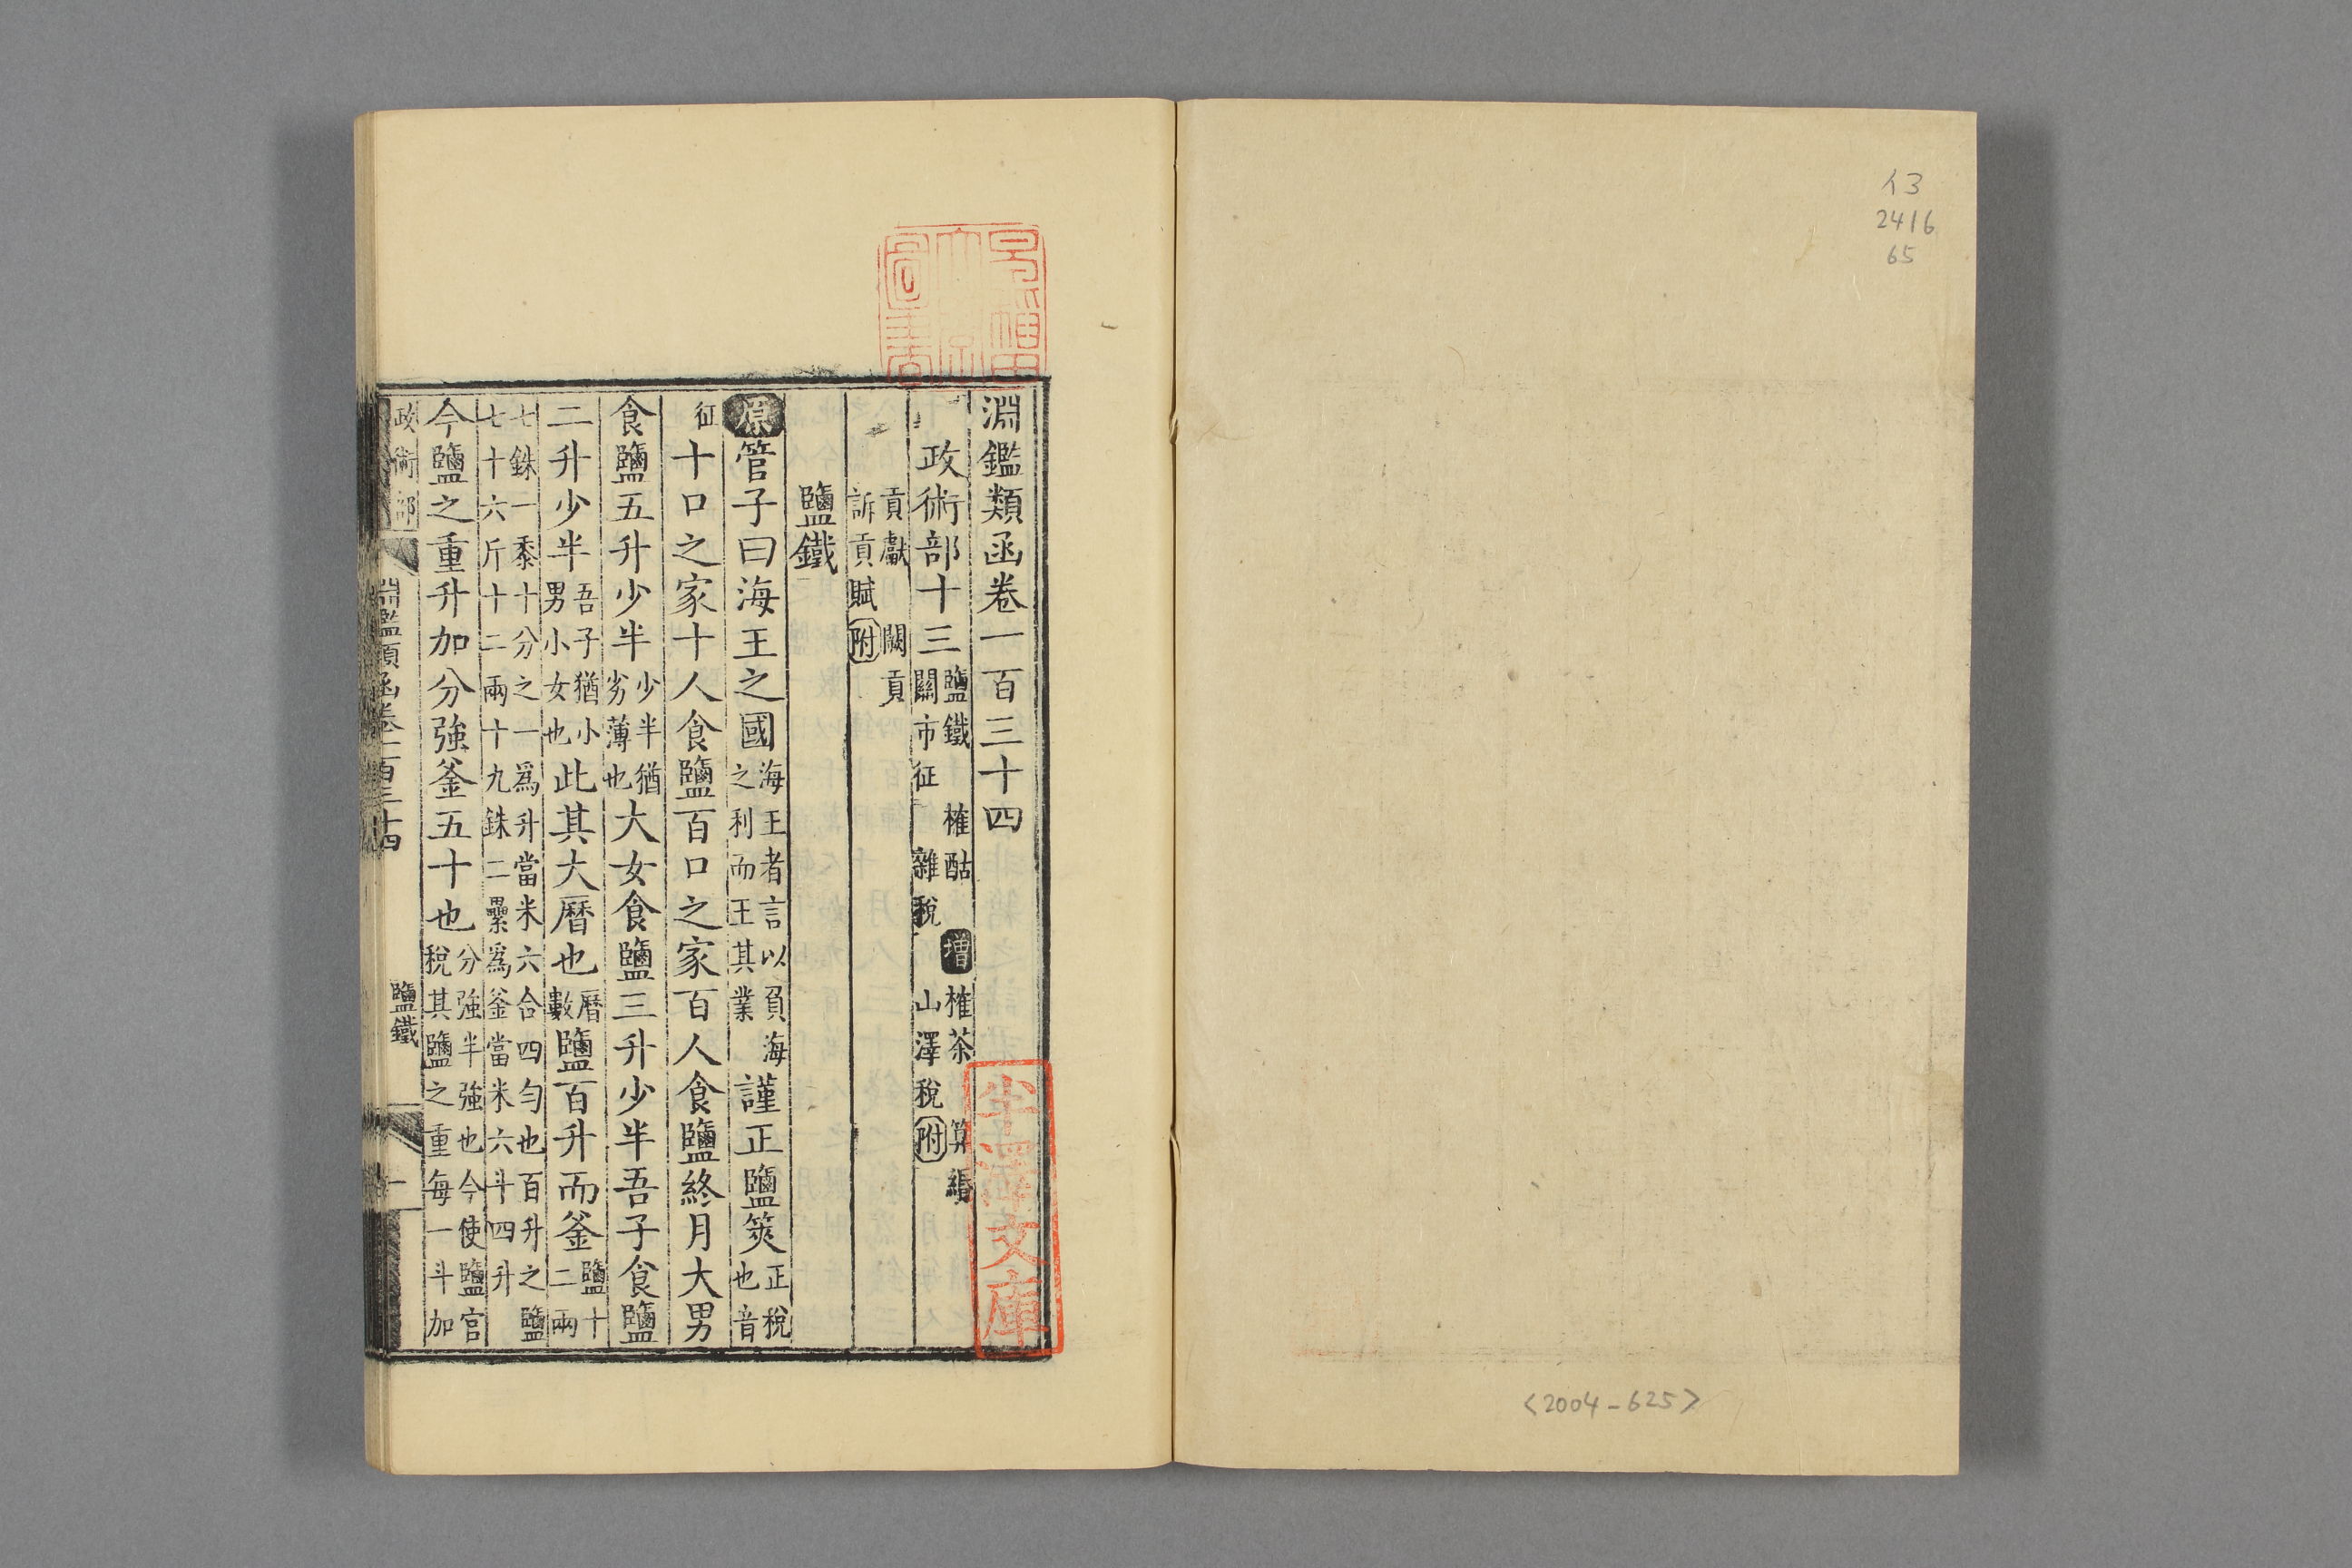 13
2416
65
<2004-625>
淵鑑類函卷一百三十四
政術部十三 鹽鐵 榷酤 增榷茶 算緡 關市征 雜稅 山澤稅 附
貢獻 闕貢 訴貢賦 附
鹽鐵
原管子曰海王之國海王者言以負海之利而王其業謹正鹽筴正稅也音
征十口之家十人食鹽百口之家百人食鹽終月大男
食鹽五升少半少半猶劣薄也大女食鹽三升少半吾子食鹽
二升少半吾子猶小男小女也此其大曆也曆數鹽百升而釜鹽十二兩
七銖一黍十分之一為升當米六合四勺也百升之鹽七十六斤十二兩十九銖二纍為釜當米六斗四升
今鹽之重升加分強釜五十也分強半強也今使鹽官稅其鹽之重每一斗加
政術部 淵鑑類函卷一百三十四 鹽鐵 一
半澤文庫
圖書